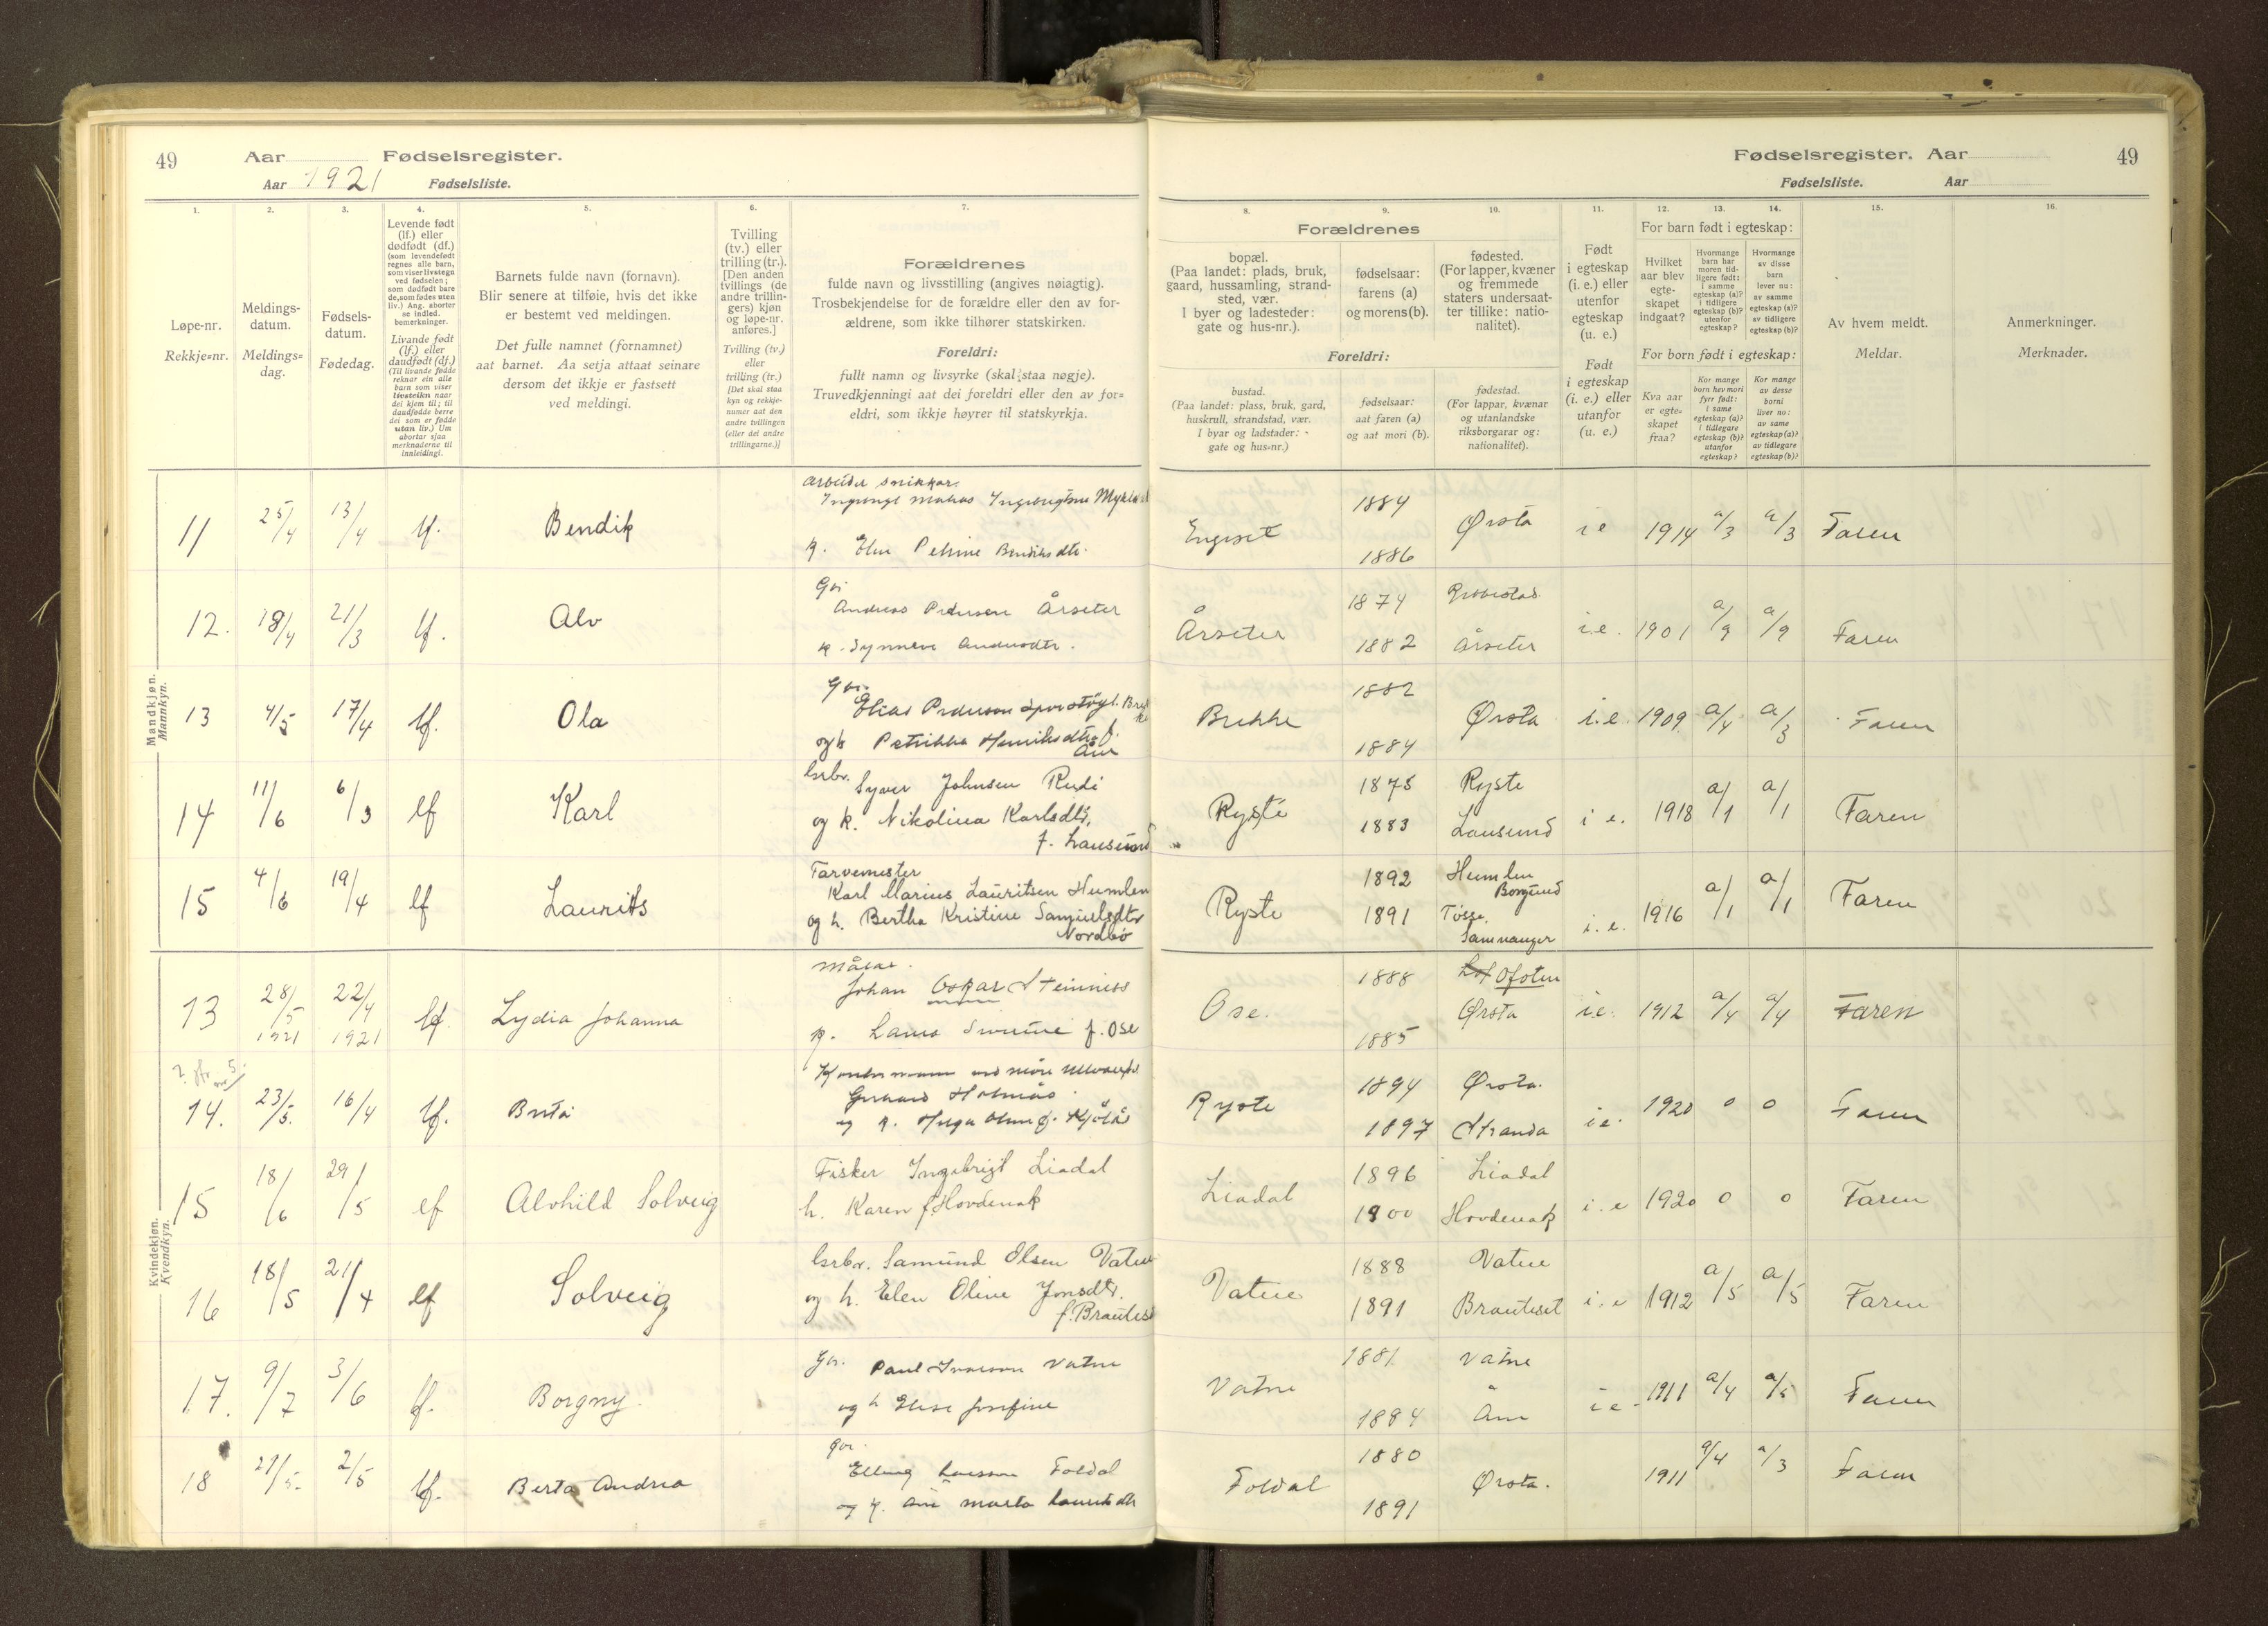 49 Aar Fødselsregister.
Aar 1921 Fødselsliste.
Fødselsregister. Aar 49
Fødselsliste. Aar
1. 2. 3. 4. 5. 6. 7. 8. 9. 10. 11. 12. 13. 14. 15. 16.
Løpe-nr.
Rekkje=nr.
Meldings-
datum.
Meldings=
dag.
Fødsels-
datum.
Fødedag.
Levende født
(lf.) eller
dødfødt (df.)
(som levendefødt
regnes alle barn,
som viser livstegn
ved fødselen;
som dødfødt bare
de, som fødes uten
liv.) Ang. aborter
se indled.
bemerkninger.
Livande født
(lf.) eller
daudfødt (df.)
(Til livande fødde
reknar ein alle
barn som viser
livsteikn naar
dei kjem til; til
daudfødde berre
dei som er fødde
utan liv.) Um
abortar sjaa
merknaderne til
innleidingi.
Barnets fulde navn (fornavn).
Blir senere at tilføie, hvis det ikke
er bestemt ved meldingen.
Det fulle namnet (fornamnet)
aat barnet. Aa setja attaat seinare
dersom det ikkje er fastsett
ved meldingi.
Tvilling
(tv.) eller
trilling (tr.).
[Den anden
tvillings (de
andre trillin-
gers) kjøn
og løpe-nr.
anføres.]
Tvilling (tv.)
eller
trilling (tr.)
[Det skal staa
kyn og rekkje-
numer aat den
andre tvillingen
(eller dei andre
trillingarne.)]
Forældrenes
fulde navn og livsstilling (angives nøiagtig).
Trosbekjendelse for de forældre eller den av for-
ældrene, som ikke tilhører statskirken.
Foreldri:
fullt namn og livsyrke (skal staa nøgje).
Truvedkjenningi aat dei foreldri eller den av for=
eldri, som ikkje høyrer til statskyrkja.
Forældrenes
bopæl.
(Paa landet: plads, bruk,
gaard, hussamling, strand-
sted, vær.
I byer og ladesteder:
gate og hus-nr.).
fødselsaar:
farens (a)
og morens (b).
fødested.
(For lapper, kvæner
og fremmede
staters undersaat-
ter tillike: natio-
nalitet).
Foreldri:
bustad.
(Paa landet: plass, bruk, gard,
huskrull, strandstad, vær.
I byar og ladstader:
gate og hus=nr.)
fødselsaar:
aat faren (a)
og aat mori (b).
fødestad.
(For lappar, kvænar
og utanlandske
riksborgarar og:
nationalitet).
Født
i egteskap
(i. e.) eller
utenfor
egteskap
(u. e.)
Født
i egteskap
(i. e.) eller
utanfor
(u. e.)
For barn født i egteskap:
Hvilket
aar blev
egte-
skapet
indgaat?
Hvormange
barn har
moren tid-
ligere født:
i samme
egteskap (a)?
i tidligere
egteskap (b)?
utenfor
egteskap?
Hvormange
av disse
barn
lever nu:
av samme
egteskap (a)?
av tidligere
egteskap (b)?
For born født i egteskap:
Kva aar
er egte=
skapet
fraa?
Kor mange
born hev mori
fyrr født:
i same
egteskap (a)?
i tidlegare
egteskap (b)?
utanfor
egteskap?
Kor mange
av desse
borni
liver no:
av same
egteskap (a)?
av tidlegare
egteskap (b)?
Av hvem meldt.
Meldar.
Anmerkninger.
Merknader.
Mandkjøn.
Mannkyn.
11 25/4 13/4 lf. Bendik
Arbeider snikkar.
k. Elen Petrine Bendiksdtr.
Engeset 1884 1886 Ørsta i e 1914 a/3 a/3 Faren
12. 18/4 21/3 lf. Alv
Andreas Pedersen Årseter
k. Synneve
Årseter 1874 1882 Årseter i.e. 1901 a/9 a/9 Faren
13 4/5 17/4 lf. Ola
Elias Pedersen
og k Petrikka Henriksdtr f.
Åm
Brekke 1882 1884 Ørsta i.e. 1909 a/4 a/3 Faren
14 11/6 6/3 lf Karl
Grbr. Syver Johnsen Rudi
og k. Nikolina Karlsdtr,
f. Lausund
Ryste 1875 Ryste 1883 Lausund i e. 1918 a/1 a/1 Faren
15 4/6 19/4 lf Laurits
Farvemester
Karl Marius Lauritsen Humlen
og h. Bertha Kristine Samuelsdtr
Nordbø
Ryste 1892 Humlen Borgund 1891 Tøsse, Samnanger i. e. 1916 a/1 a/1 Faren
Kvindekjøn.
Kvendkyn.
13 28/5 1921 22/4 1921 lf. Lydia Johanna
Målar.
Johan Oskar Steinness
k. Laura f. Ose
Ose. 1888 Ofoten 1885 Ørsta i.e. 1912 a/4 a/4 Faren
14. 23/5. 16/4 lf. Brita
og k. Helga
Ryste 1894 Ørsta. 1897 Stranda i e. 1920 0 0 Faren
15 18/6 29/5 lf Alvhild Solveig
Fisker Ingebrigt Liadal
h. Karen f. Hovdenak
Liadal 1896 Liadal 1900 Hovdenak i.e 1920 0 0 Faren
16 18/5 21/4 lf Solveig
Grbr. Samund Olsen Vatne
og h. Elen Oline Jonsdtr.
f. Brauteset
Vatne 1888 Vatne 1891 Brauteset i.e 1912 a/5 a/5 Faren
17. 9/7 3/6 lf. Borgny.
Gbr. Paul Ivarson Vatne
og k Elise Josefine
Vatne 1881 Vatne 1884 Åm i e - 1911 a/4 a/5 Faren
18 27/5. 2/5 lf. Berta Andrea
Gbr.
Elling Larsson Foldal
og k. Ane Marta
Foldal 1880 1891 Ørsta. 1911 a/4 a/3 Faren